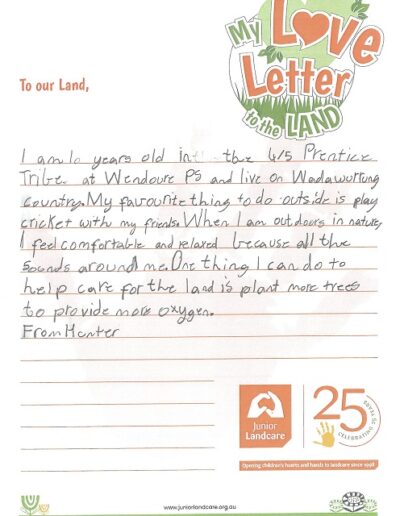 My Love Letter to the LAND
To our Land,
I am 10 years old in the 4/5 Prentice
Tribe at Wendouree PS and live on Wadawurrung
country. My favourite thing to do outside is play
cricket with my friends. When I am outdoors in nature,
I feel comfortable and relaxed because all the
sounds around me. One thing I can do to
help care for the land is plant more trees
to provide more oxygen.
From Hunter
Junior
Landcare
25
CELEBRATING 25 YEARS
Opening children's hearts and hands to landcare since 1998
www.juniorlandcare.org.au